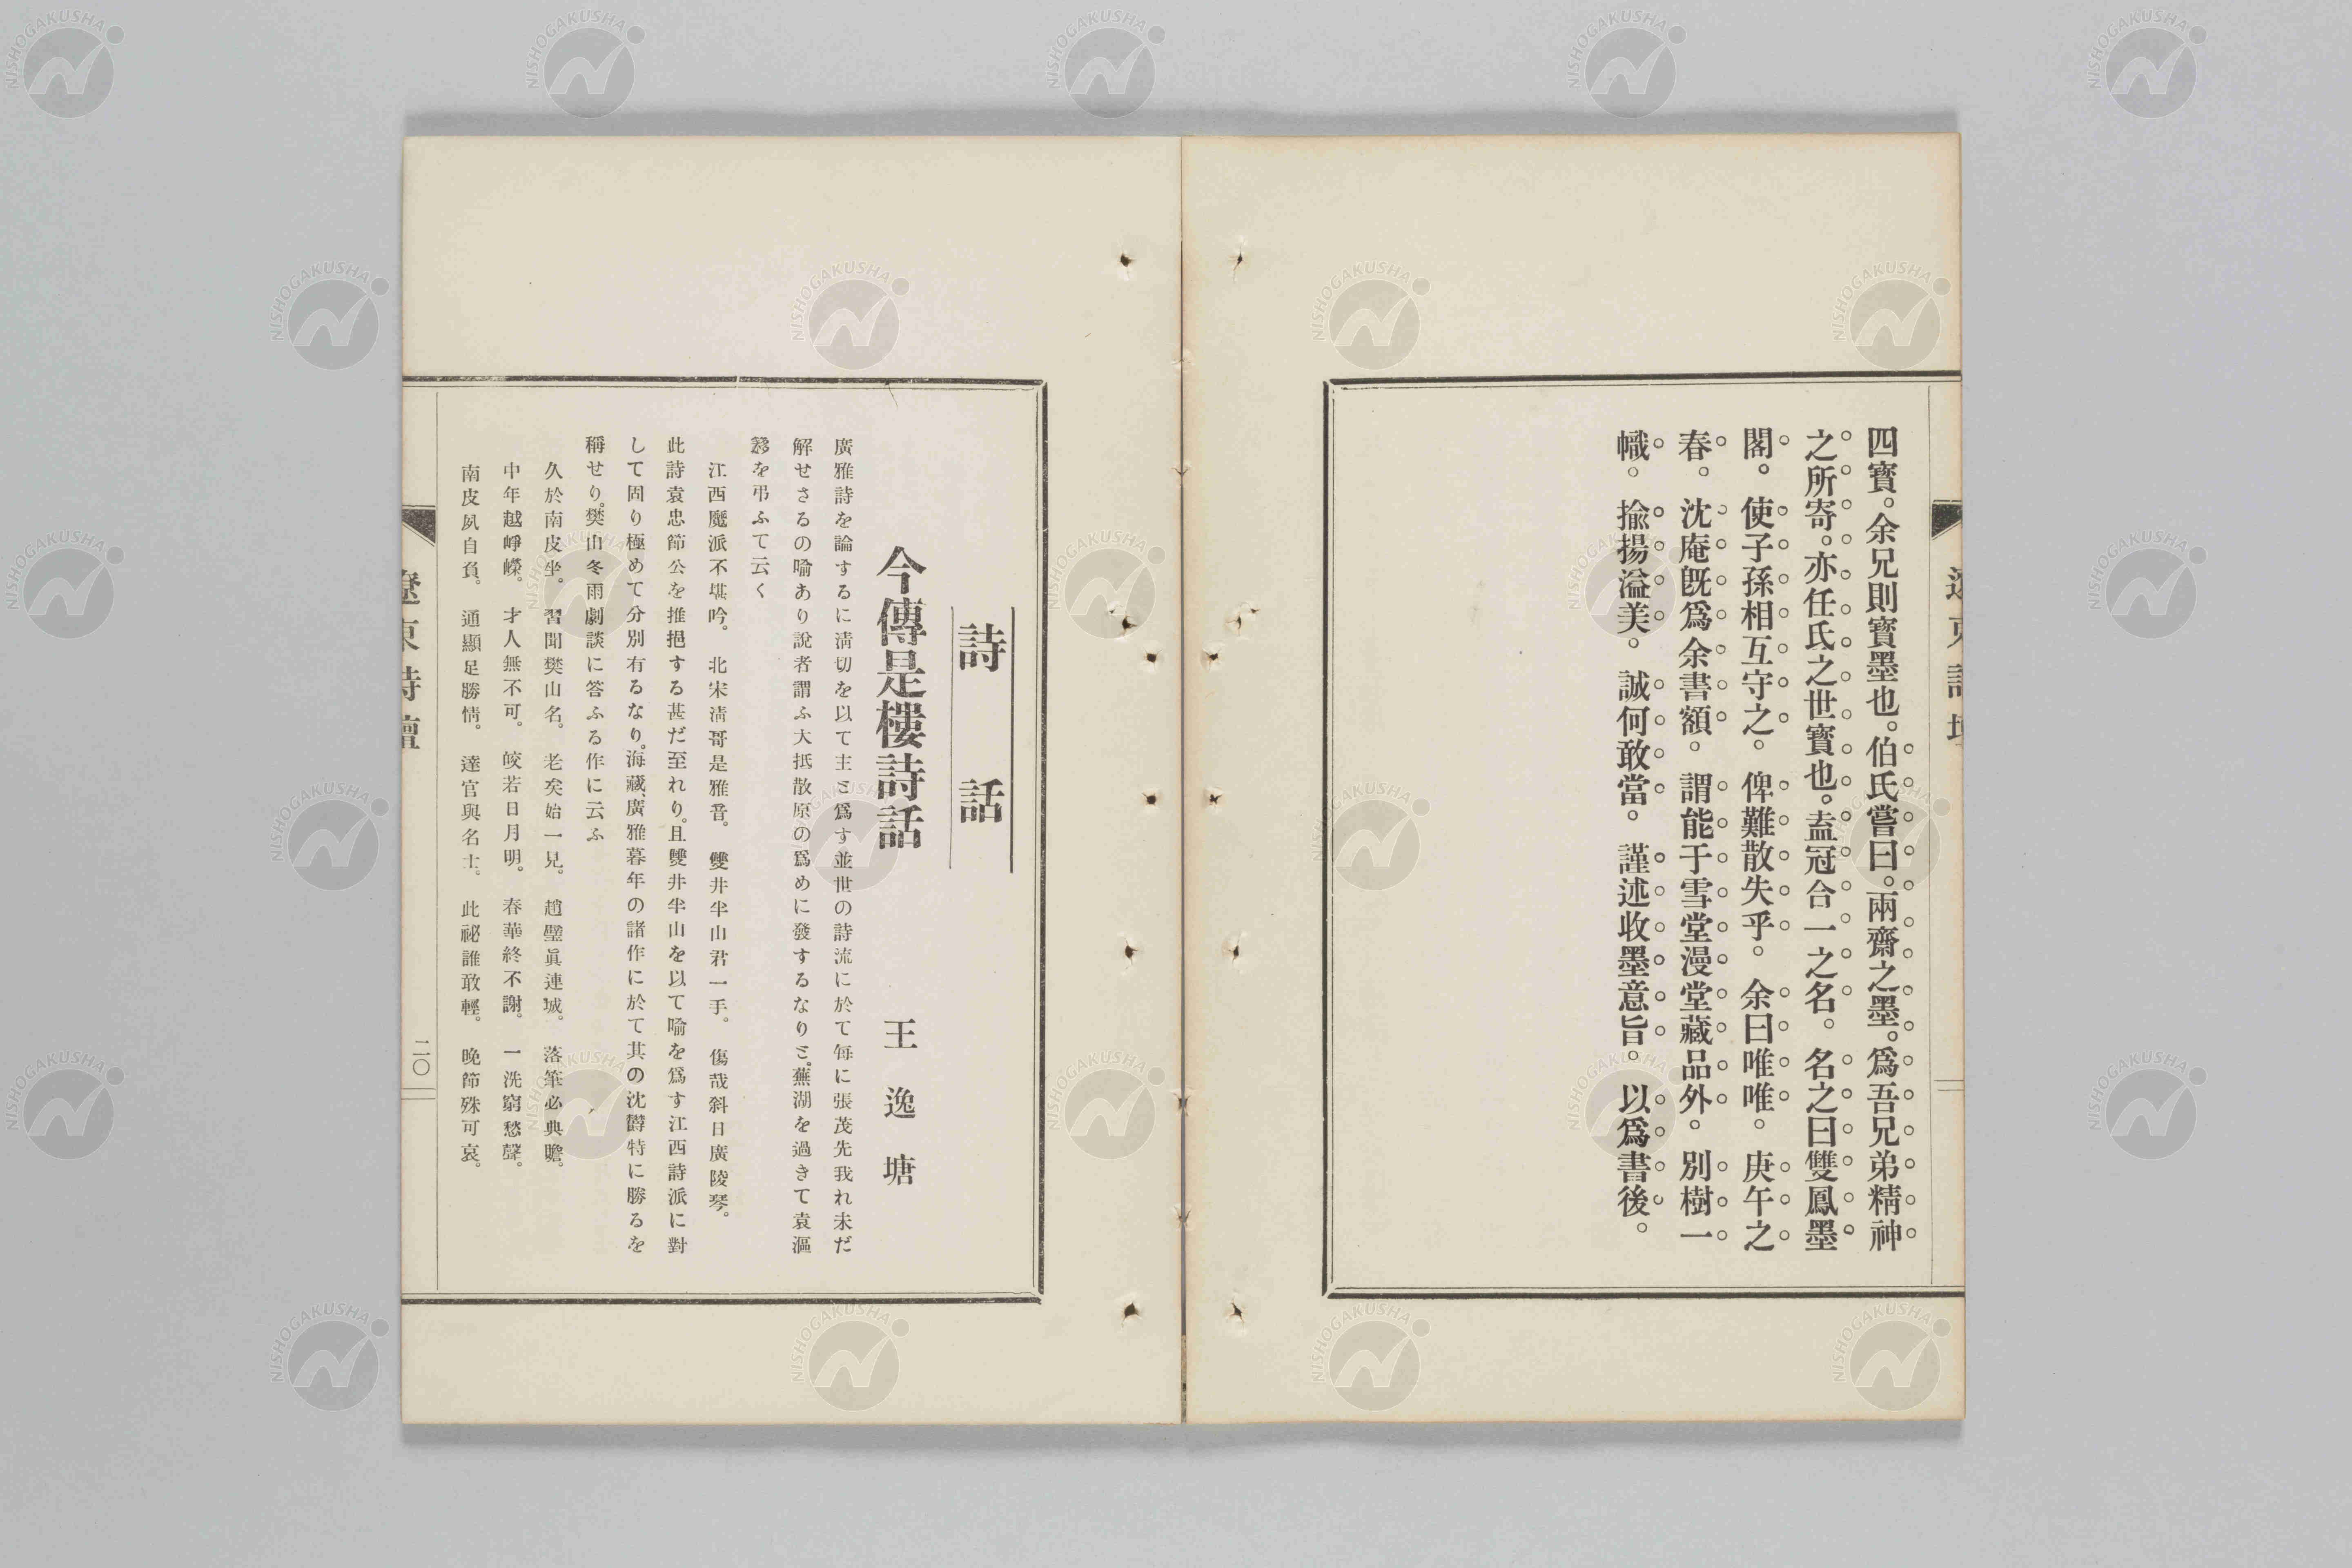 四寶。余兄則寶墨也。伯氏嘗曰。兩齋之墨。爲吾兄弟精神
之所寄。亦任氏之世寶也。盍冠合一之名。名之曰雙鳳墨
閣。使子孫相互守之。俾難散失乎。余曰唯唯。庚午之
春。沈庵既爲余書額。謂能于雪堂漫堂藏品外。別樹一
幟。揄揚溢美。誠何敢當。謹述收墨意旨。以爲書後。
詩話
今傳是樓詩話 王逸塘
廣雅詩を論するに淸切を以て主ミ爲す並世の詩流に於て每に張茂先我れ未だ
解せさるの喩あり說者謂ふ大抵散原の爲めに發するなりミ。蕪湖を過きて袁漚
簃を弔ふて云く
江西魔派不堪吟。北宋淸哥是雅音。雙井半山君一手。傷哉斜日廣陵琴。
此詩袁忠節公を推挹する甚だ至れり。且雙井半山を以て喩を爲す江西詩派に對
して固り極めて分別有るなり。海藏、廣雅暮年の諸作に於て其の沈欝特に勝るを
稱せり。樊山冬雨劇談に答ふる作に云ふ
久於南皮坐。習聞樊山名。老矣始一見。趙璧眞連城。落筆必典贍。
中年越崢嶸。才人無不可。皎若日月明。春華終不謝。一洗窮愁聲。
南皮夙自負。通顯足勝情。達官與名士。此祕誰敢輕。晚節殊可哀。
遼東詩壇
二〇
NISHOGAKUSHA